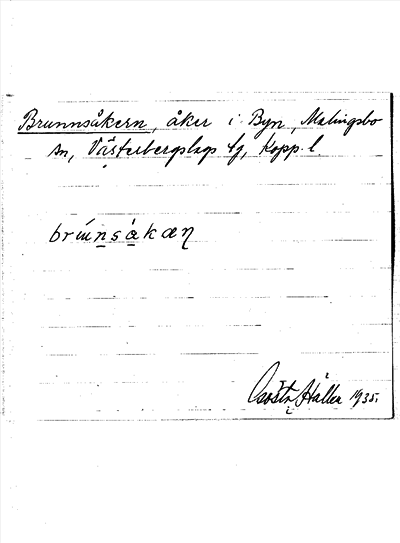 Brunnsåkern, åker i Byn, Malingsbo
sn, Västerbergslags tg, Kopp. l.
brúnsàkæn
Gösta Häller 1935.